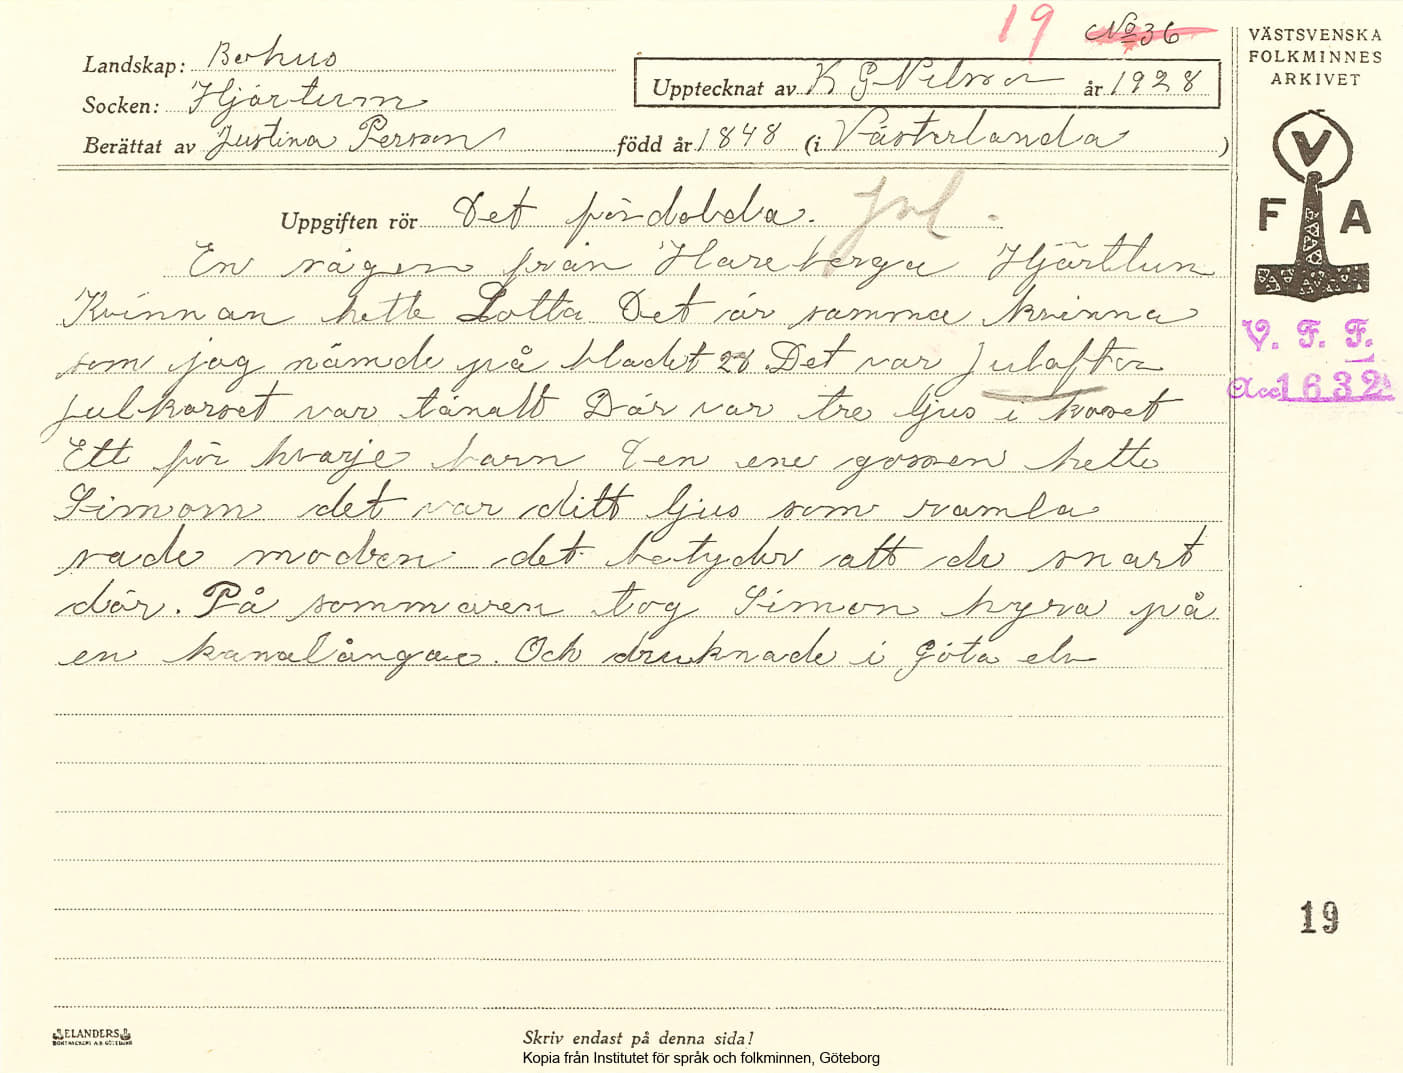 19 No 36
Landskap: Bohus
Socken: Hjärtum
Upptecknat av K G Nilsson år 1928
Berättat av Justina Persson född år 1848 (i Västerlanda)
Uppgiften rör Det fördolda. Jul
En sägen från Hareberga Hjärttun
Kvinnan hette Lotta Det är samma kvinna
som jag nämde på bladet 28. Det var Julafton
julkorset var tänatt Där var tre ljus i korset
Ett för hvarje barn Den ene gossen hette
Simom det var ditt ljus som ramla
sade modren det betyder att du snart
dör. På sommaren tog Simon hyra på
en kanalångare. Och druknade i Göta elv
VÄSTSVENSKA
FOLKMINNES
ARKIVET
V
F A
V. F. F.
Acc 1632
19
ELANDERS
BOKTRYCKERI A.B. GÖTEBORG
Skriv endast på denna sida!
Kopia från Institutet för språk och folkminnen, Göteborg